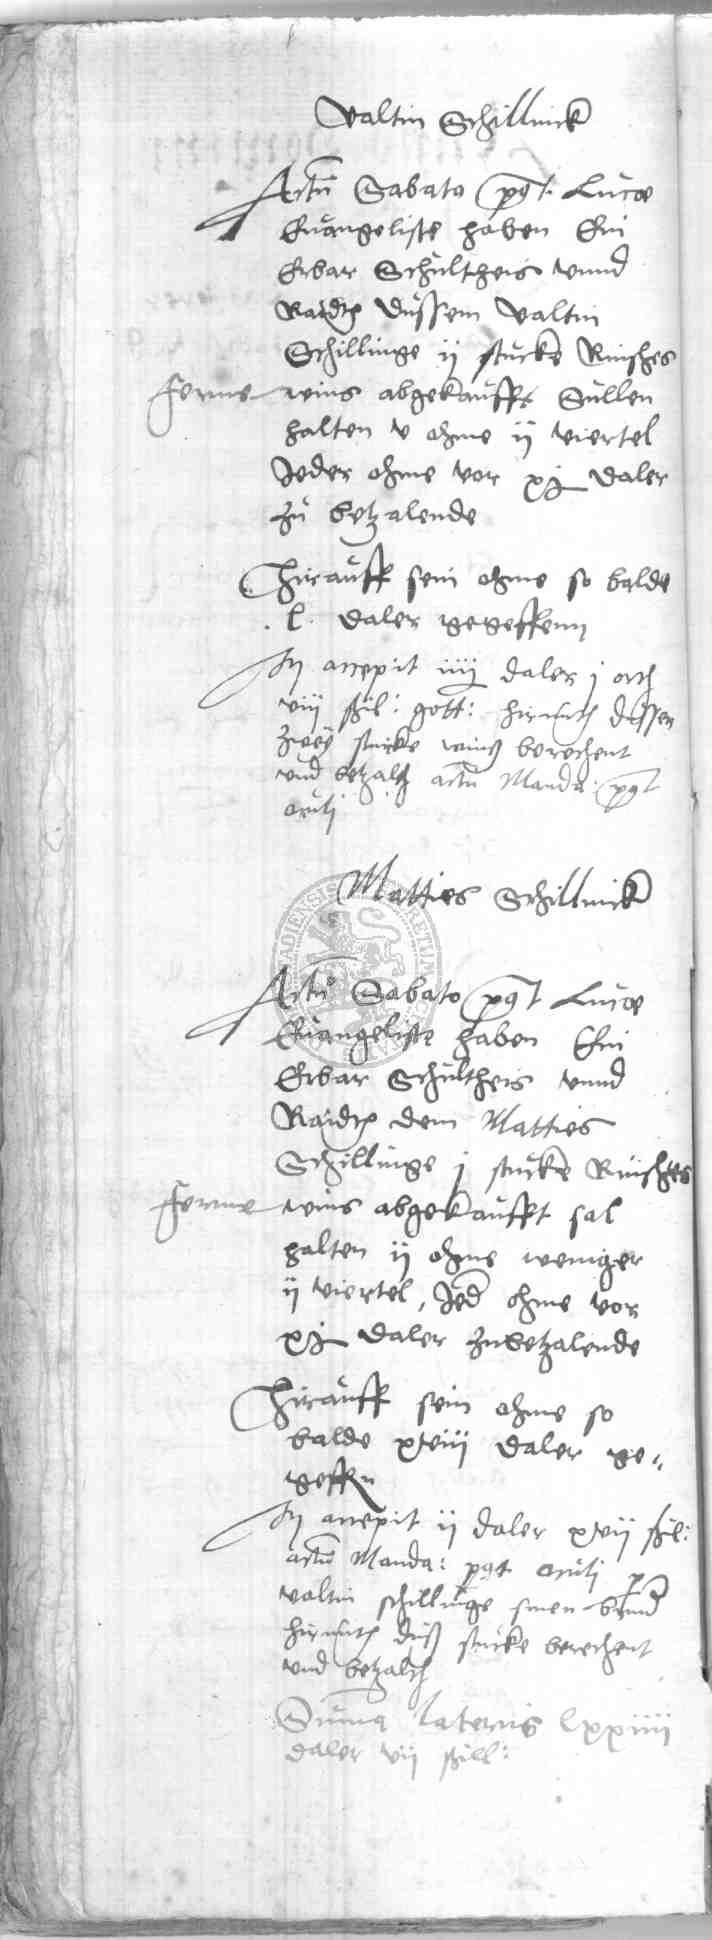 Valtin Schillinck
Actu͂ Sabato p9t. Lucæ
Euangeliste haben Ein
Erbar Schultheis vnnd
Raidt dussem Valtin
Schillinge ij stucke Rinsches
ferne wins abgekaufft Sullen
halten v ohme ij viertel
Jeder ohme vor xj daler
zu betzalende
Hirauff sein ohme so balde
. l . daler gegeffenn
It accepit iiij daler j orth
viij ßil: gott: hirmith dussen
zwey stucke wins berechent
vnd betzalt actu͂ Manda: p9t
oculj
Matties Schillinck
Actu͂ Sabato p9t Lucæ
Euangeliste haben Ein
Erbar Schultheis vnnd
Raidt dem Matties
Schillinge j stucke Rinsches
ferne wins abgekaufft sal
halten ij ohme weniger
ij viertel, Jed ohme vor
xj daler zubetzalende
Hirauff sein ohme so
balde xviij daler ge„
geffn
It accepit ij daler xvij ßil:
actu͂ Manda: p9t oculj p
valtin schillinge sinen brud
hirmith duß stucke berechent
vnd betzalt
Suma lateris lxxiiij
daler vij ßill: